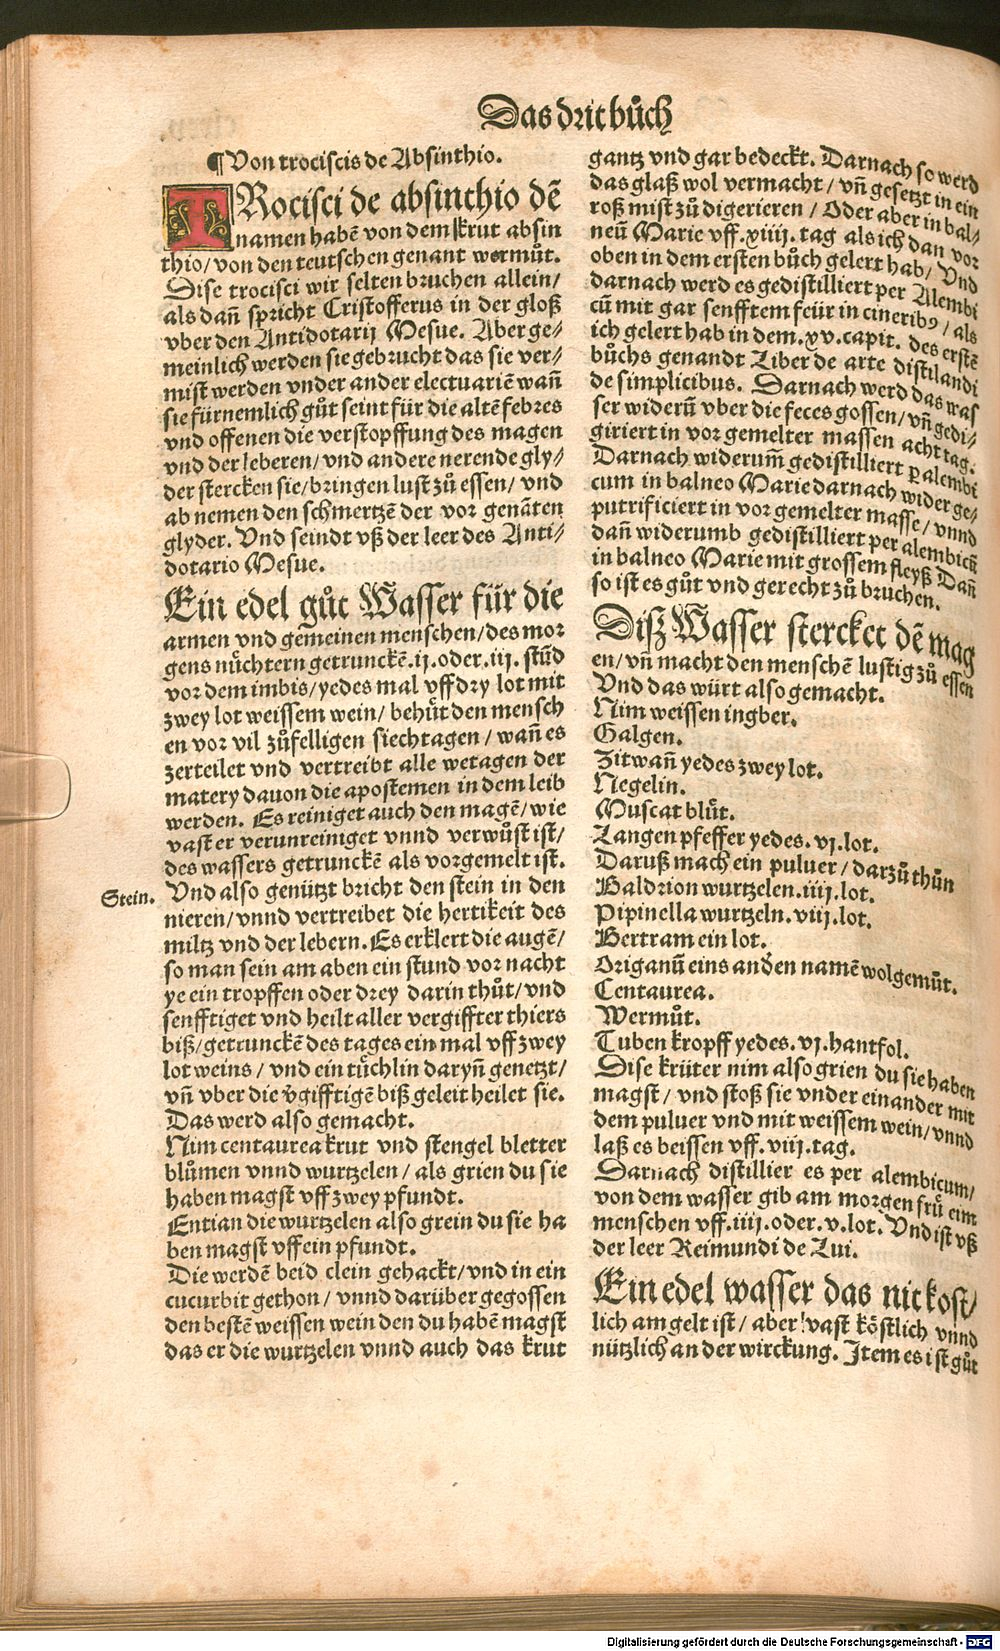 Das drit bůch
¶ Von trociscis de Absinthio.
TRocisci de absinthio dē
namen habē von dem krut absin
thio/von den teutschen genant wermůt.
Dise trocisci wir selten bruchen allein/
als dañ spricht Cristofferus in der gloß
vber den Antidotarij Mesue. Aber ge⸗
meinlich werden sie gebrucht das sie ver⸗
mist werden vnder ander electuariē wañ
sie fürnemlich gůt seint für die altē febres
vnd offenen die verstopffung des magen
vnd der leberen/vnd andere nerende gly⸗
der stercken sie/bringen lust zů essen/ vnd
ab nemen den schmertzē der vor genāten
glyder. Vnd seindt vß der leer des Anti⸗
dotario Mesue.
Ein edel gůt Wasser für die
armen vnd gemeinen menschen/des mor
gens nüchtern getrunckē.ij.oder.iij. stūd
vor dem imbis/yedes mal vff dry lot mit
zwey lot weissem wein/ behüt den mensch
en vor vil zůfelligen siechtagen / wañ es
zerteilet vnd vertreibt alle wetagen der
matery dauon die apostemen in dem leib
werden. Es reiniget auch den magē/ wie
vast er verunreiniget vnnd verwüst ist/
des wassers getrunckē als vorgemelt ist.
Stein.
Vnd also genützt bricht den stein in den
nieren/vnnd vertreibet die hertikeit des
miltz vnd der lebern. Es erklert die augē/
so man sein am aben ein stund vor nacht
ye ein tropffen oder drey darin thůt/vnd
senfftiget vnd heilt aller vergiffter thiers
biß/getrunckē des tages ein mal vff zwey
lot weins / vnd ein tüchlin daryñ genetzt/
vñ vber die v̄gifftigē biß geleit heilet sie.
Das werd also gemacht.
Nim centaurea krut vnd stengel bletter
blůmen vnnd wurtzelen / als grien du sie
haben magst vff zwey pfundt.
Entian die wurtzelen also grein du sie ha
ben magst vff ein pfundt.
Die werdē beid clein gehackt/vnd in ein
cucurbit gethon / vnnd darüber gegossen
den bestē weissen wein den du habē magst
das er die wurtzelen vnnd auch das krut
gantz vnd gar bedeckt. Darnach so werd
das glaß wol vermacht / vñ gesetzt in ein
roß mist zů digerieren / Oder aber in bal⸗
neū Marie vff.xiiij.tag als ich dan vor
oben in dem ersten bůch gelert hab/ Vnd
darnach werd es gedistilliert per Alembi
cū mit gar senfftem feür in cineribꝰ / als
ich gelert hab in dem.xv.capit. des erstē
bůchs genandt Liber de arte distilandi
de simplicibus. Darnach werd das was
ser widerū vber die feces gossen/vñ gedi⸗
giriert in vor gemelter massen acht tag.
Darnach widerum̄ gedistilliert ꝑ alembi
cum in balneo Marie darnach wider ge⸗
putrificiert in vor gemelter masse / vnnd
dañ widerumb gedistilliert per alembicū
in balneo Marie mit grossem fleyß Dañ
so ist es gůt vnd gerecht zů bruchen.
Diß Wasser stercket dē mag
en/vñ macht den menschē lustig zů essen
Vnd das würt also gemacht.
Nim weissen ingber.
Galgen.
Zitwañ yedes zwey lot.
Negelin.
Muscat blüt.
Langen pfeffer yedes.vj.lot.
Daruß mach ein puluer / darzů thůn
Baldrion wurtzelen.iiij.lot.
Pipinella wurtzeln.viij.lot.
Bertram ein lot.
Origanū eins andern namē wolgemůt.
Centaurea.
Wermůt.
Tuben kropff yedes.vj.hantfol.
Dise krüter nim also grien du sie haben
magst / vnd stoß sie vnder einander mit
dem puluer vnd mit weissem wein/vnnd
laß es beissen vff.viij.tag.
Darnach distillier es per alembicum/
von dem wasser gib am morgen frü eim
menschen vff.iiij.oder.v.lot. Vnd ist vß
der leer Reimundi de Lui.
Ein edel wasser das nit kost⸗
lich am gelt ist / aber vast köstlich vnnd
nützlich an der wirckung. Item es ist gůt
Digitalisierung gefördert durch die Deutsche Forschungsgemeinschaft - DFG